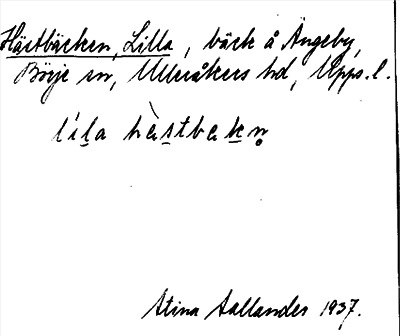 Hästbäcken, Lilla, bäck å Ängeby,
Börje sn, Ulleråkers hd, Upps. l.
líla hὲstbekn̥
Stina Sallander 1937.